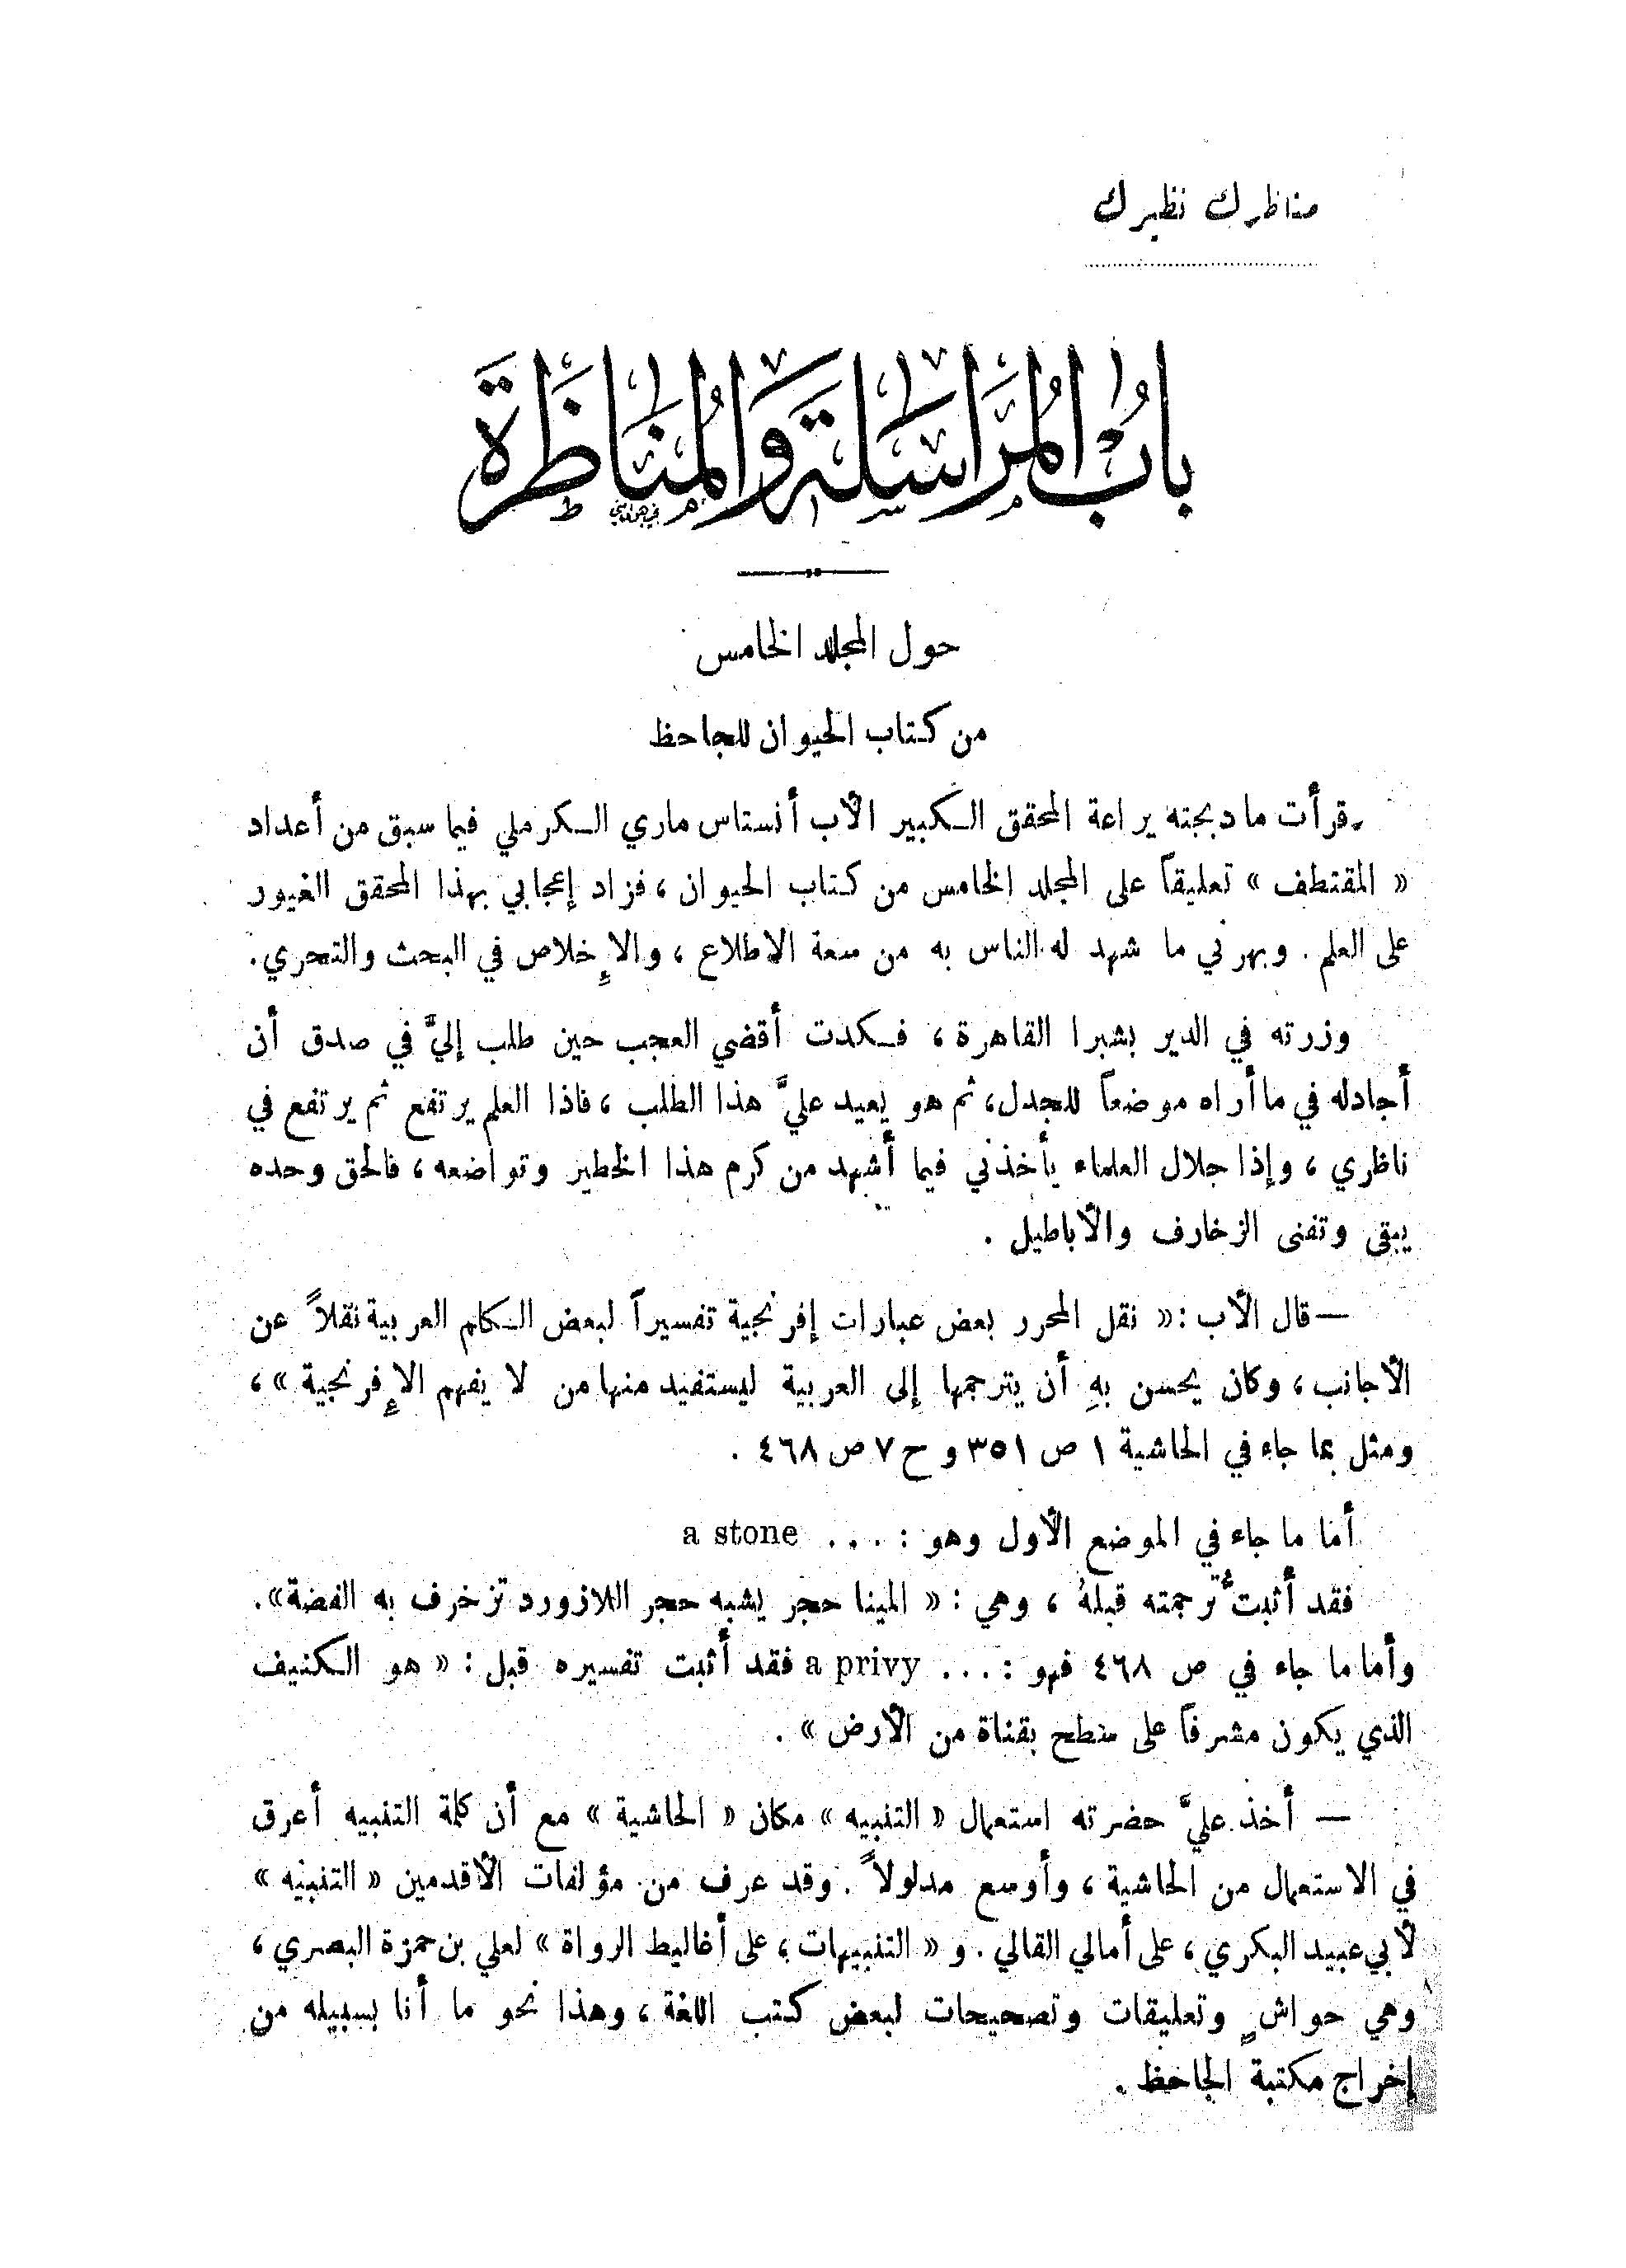 مناظرك نظيرك
باب المراسلة والمناظرة
حول المجلد الخامس
من كتاب الحيوان للجاحظ
قرأت ما دبجته يراعة المحقق الكبير الأب أنستاس ماري الكرملي فيما سبق من أعداد
« المقتطف » تعليقاً على المجلد الخامس من كتاب الحيوان ، فزاد إعجابي بهذا المحقق الغيور
على العلم . وبهرني ما شهد له الناس به من سعة الاطلاع ، والإخلاص في البحث والتحري .
وزرته في الدير بشبرا القاهرة ، فكدت أقضي العجب حين طلب إليَّ في صدق أن
أجادله في ما أراه موضعاً للجدل ، ثم هو يعيد عليَّ هذا الطلب ، فاذا العلم يرتفع ثم يرتفع في
ناظري ، وإذا جلال العلماء يأخذني فيما أشهد من كرم هذا الخطير وتواضعه ، فالحق وحده
يبقى وتفنى الزخارف والأباطيل .
— قال الأب : « نقل المحرر بعض عبارات إفرنجية تفسيراً لبعض الكلم العربية نقلاً عن
الأجانب ، وكان يحسن بهِ أن يترجمها إلى العربية ليستفيد منها من لا يفهم الإفرنجية » ،
ومثل بما جاء في الحاشية ١ ص ٣٥١ و ح ٧ ص ٤٦٨ .
أما ما جاء في الموضع الأول وهو : . . . a stone
فقد أثبتُّ ترجمته قبلهُ ، وهي : « المينا حجر يشبه حجر اللازورد تزخرف به الفضة » .
وأما ما جاء في ص ٤٦٨ فهو : . . . a privy فقد أثبت تفسيره قبل : « هو الكنيف
الذي يكون مشرفاً على سطح بقناة من الأرض » .
— أخذ عليَّ حضرته استعمال « التنبيه » مكان « الحاشية » مع أن كلمة التنبيه أعرق
في الاستعمال من الحاشية ، وأوسع مدلولاً . وقد عرف من مؤلفات الأقدمين « التنبيه »
لأبي عبيد البكري ، على أمالي القالي . و « التنبيهات ، على أغاليط الرواة » لعلي بن حمزة البصري ،
وهي حواشٍ وتعليقات وتصحيحات لبعض كتب اللغة ، وهذا نحو ما أنا بسبيله من
إخراج مكتبة الجاحظ .